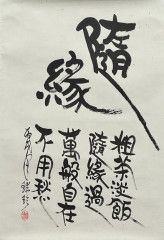 隨緣
粗茶淡飯
隨緣過
萬般自在
不用愁